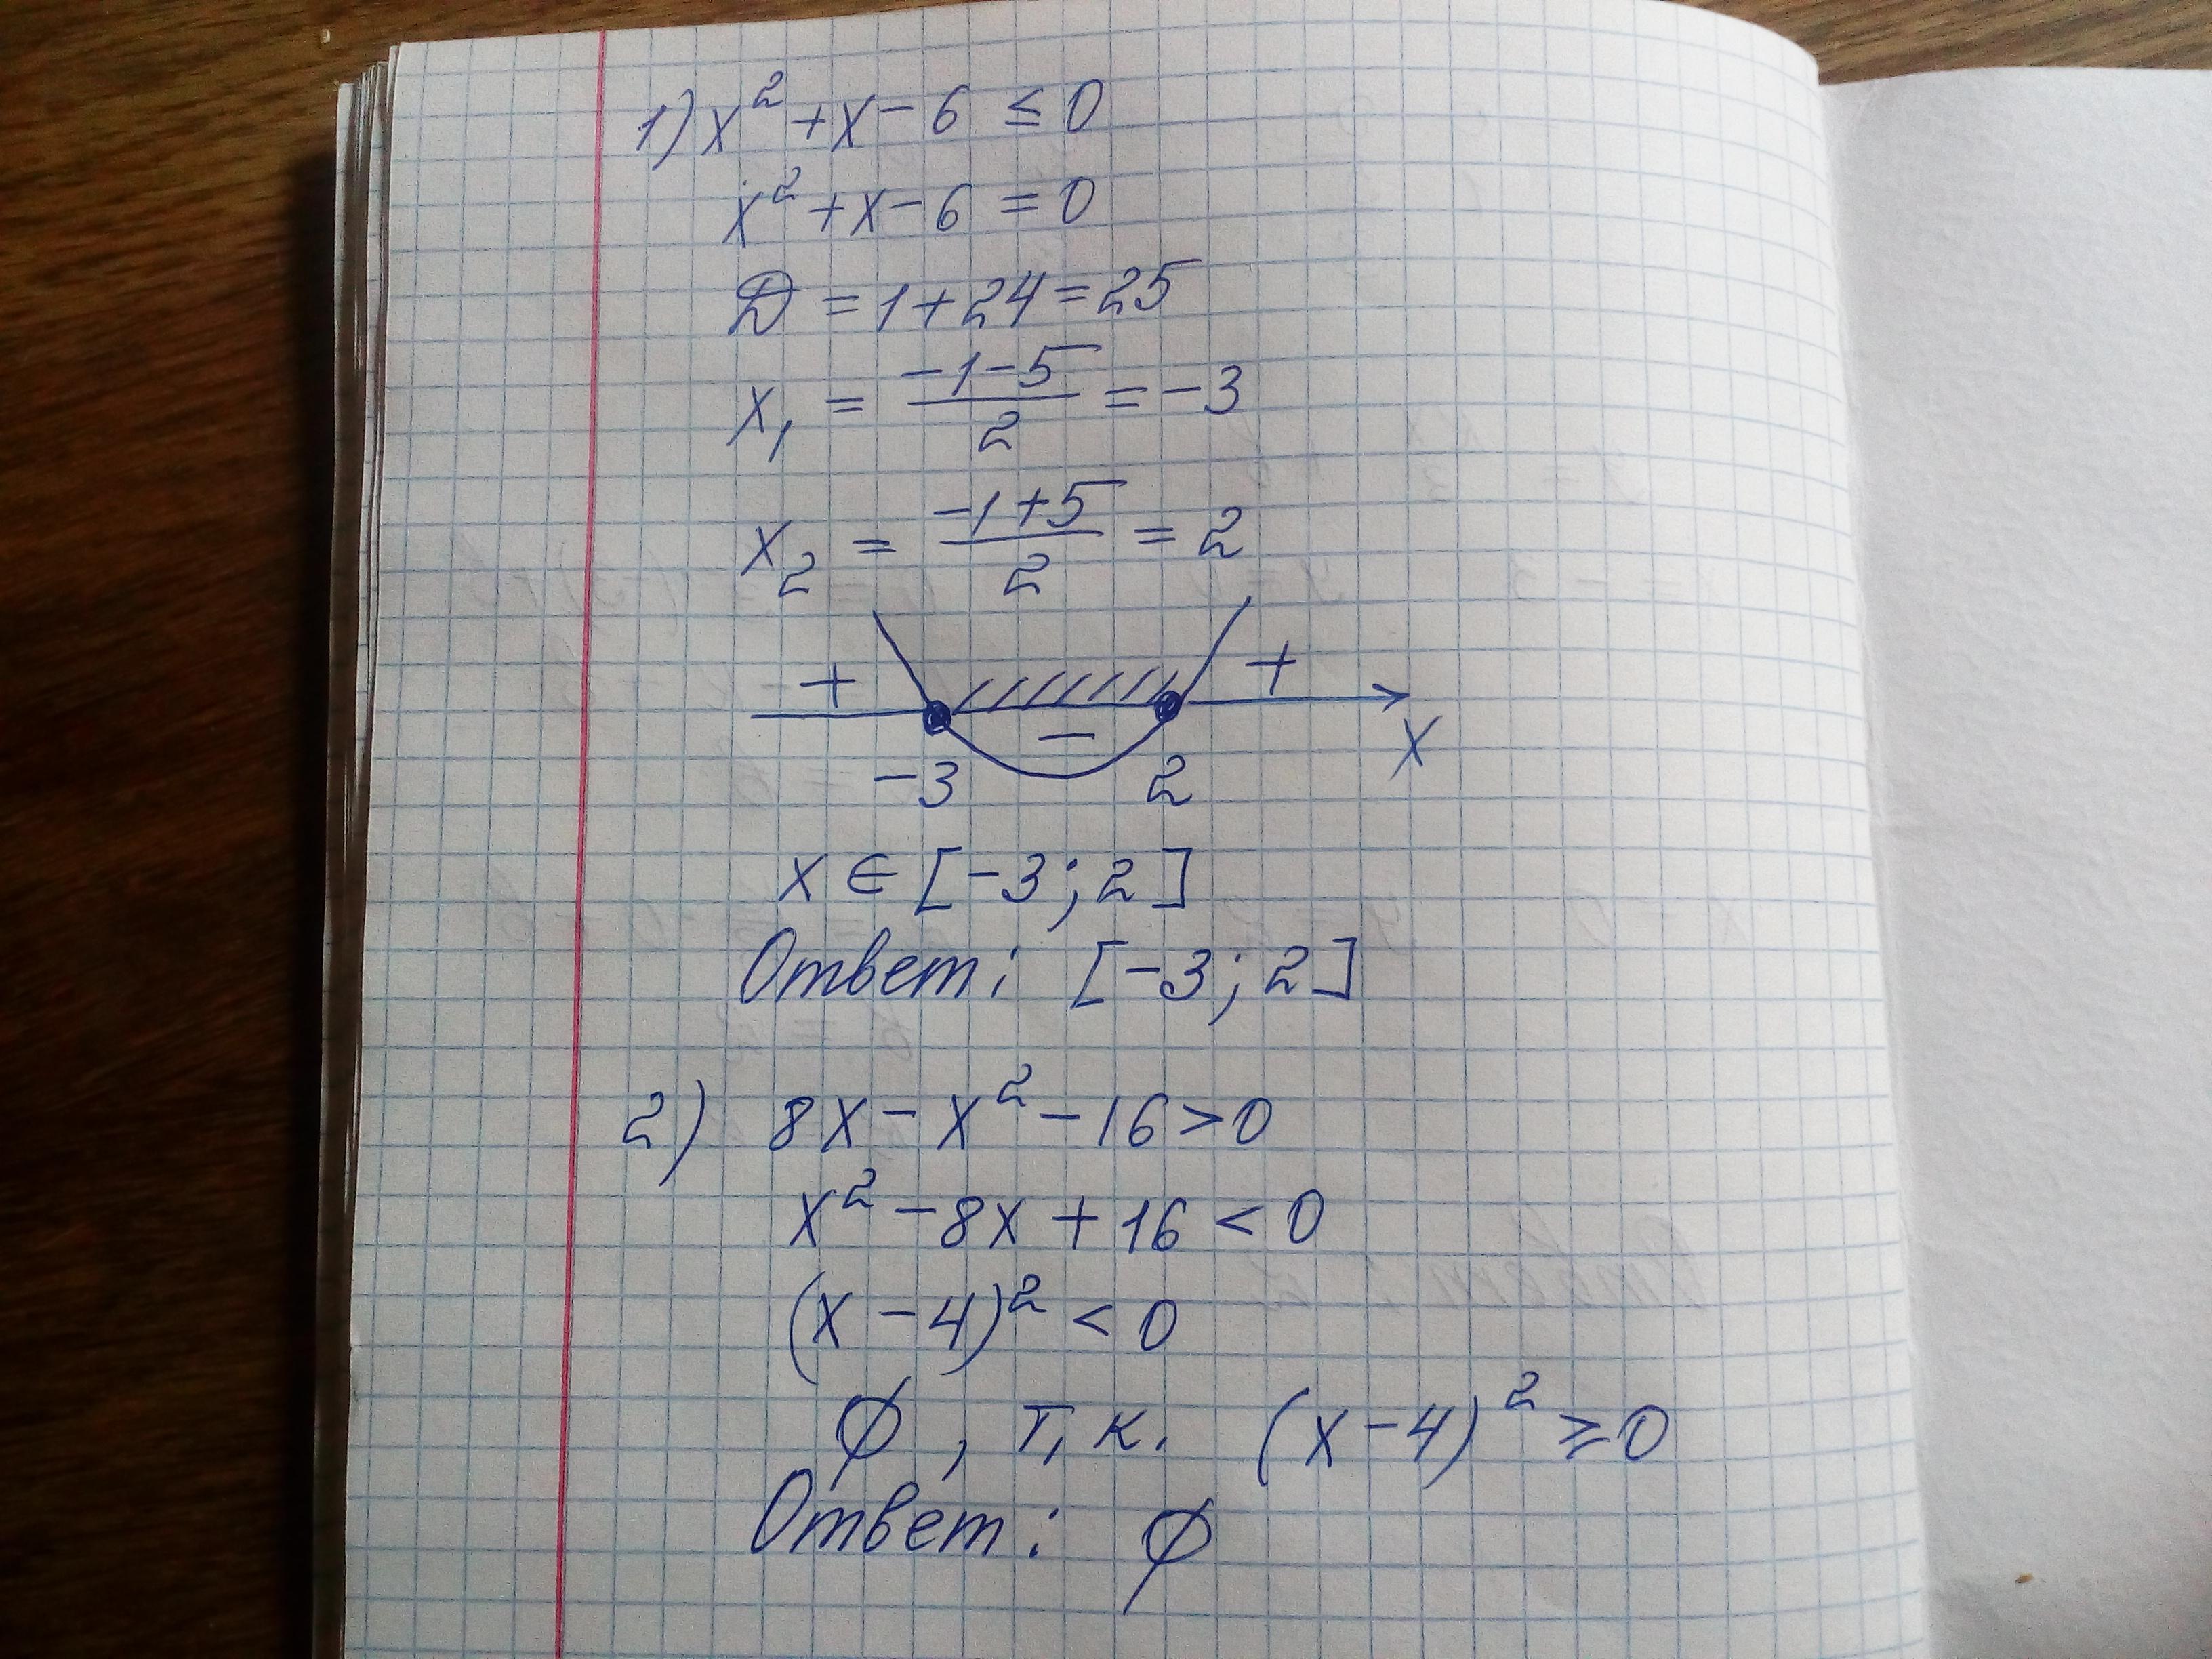 1) x² + x - 6 ≤ 0
x² + x - 6 = 0
D = 1 + 24 = 25
x₁ = (-1-5)/2 = -3
x₂ = (-1+5)/2 = 2
+ - +
-3 2 x
x ∈ [-3; 2]
Ответ: [-3; 2]
2) 8x - x² - 16 > 0
x² - 8x + 16 < 0
(x - 4)² < 0
∅, т.к. (x - 4)² ≥ 0
Ответ: ∅